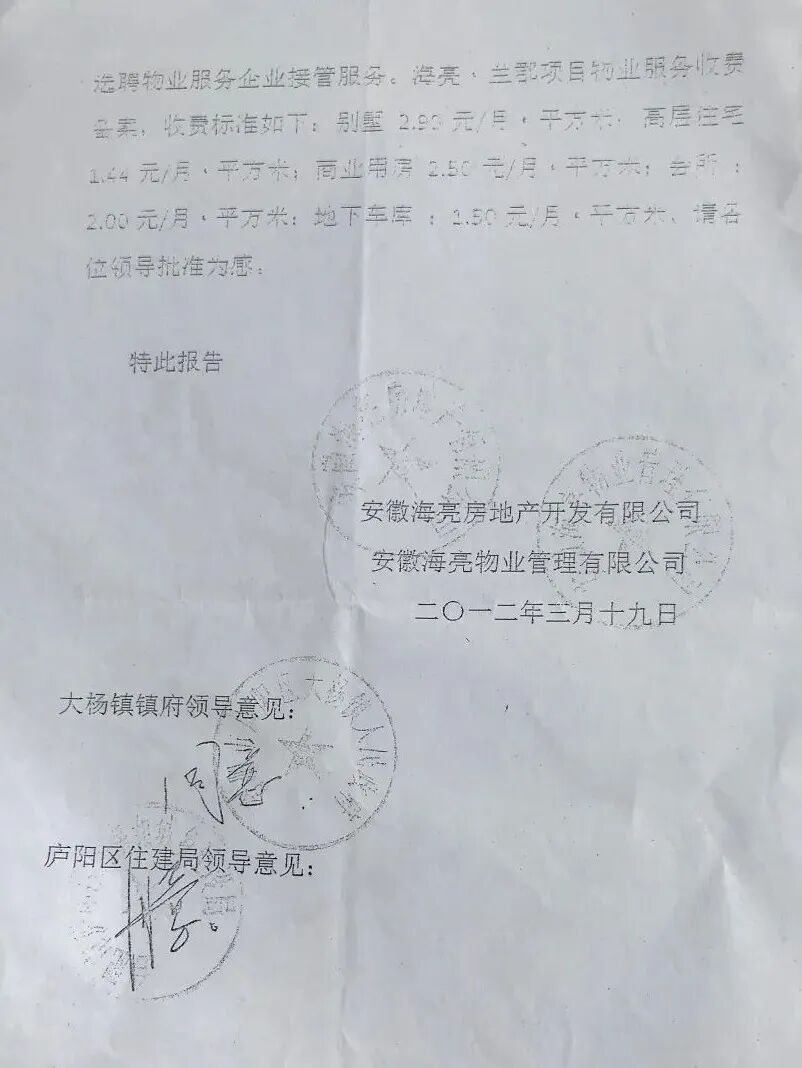 选聘物业服务企业接管服务。海亮·兰郡项目物业服务收费
备案，收费标准如下：别墅 2.90 元/月·平方米；高层住宅
1.44 元/月·平方米；商业用房 2.50 元/月·平方米；会所：
2.00 元/月·平方米；地下车库：2.50 元/月·平方米、请各
位领导批准为感。
特此报告
安徽海亮房地产开发有限公司
安徽海亮物业管理有限公司
二〇一二年三月十九日
大杨镇镇府领导意见：
同意
庐阳区住建局领导意见：